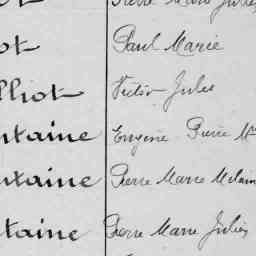 ot Paul Marie
lliot Victor Jules
ntaine Eugène Pierre M
ntaine Pierre Marie
ntaine Pierre Marie Jules